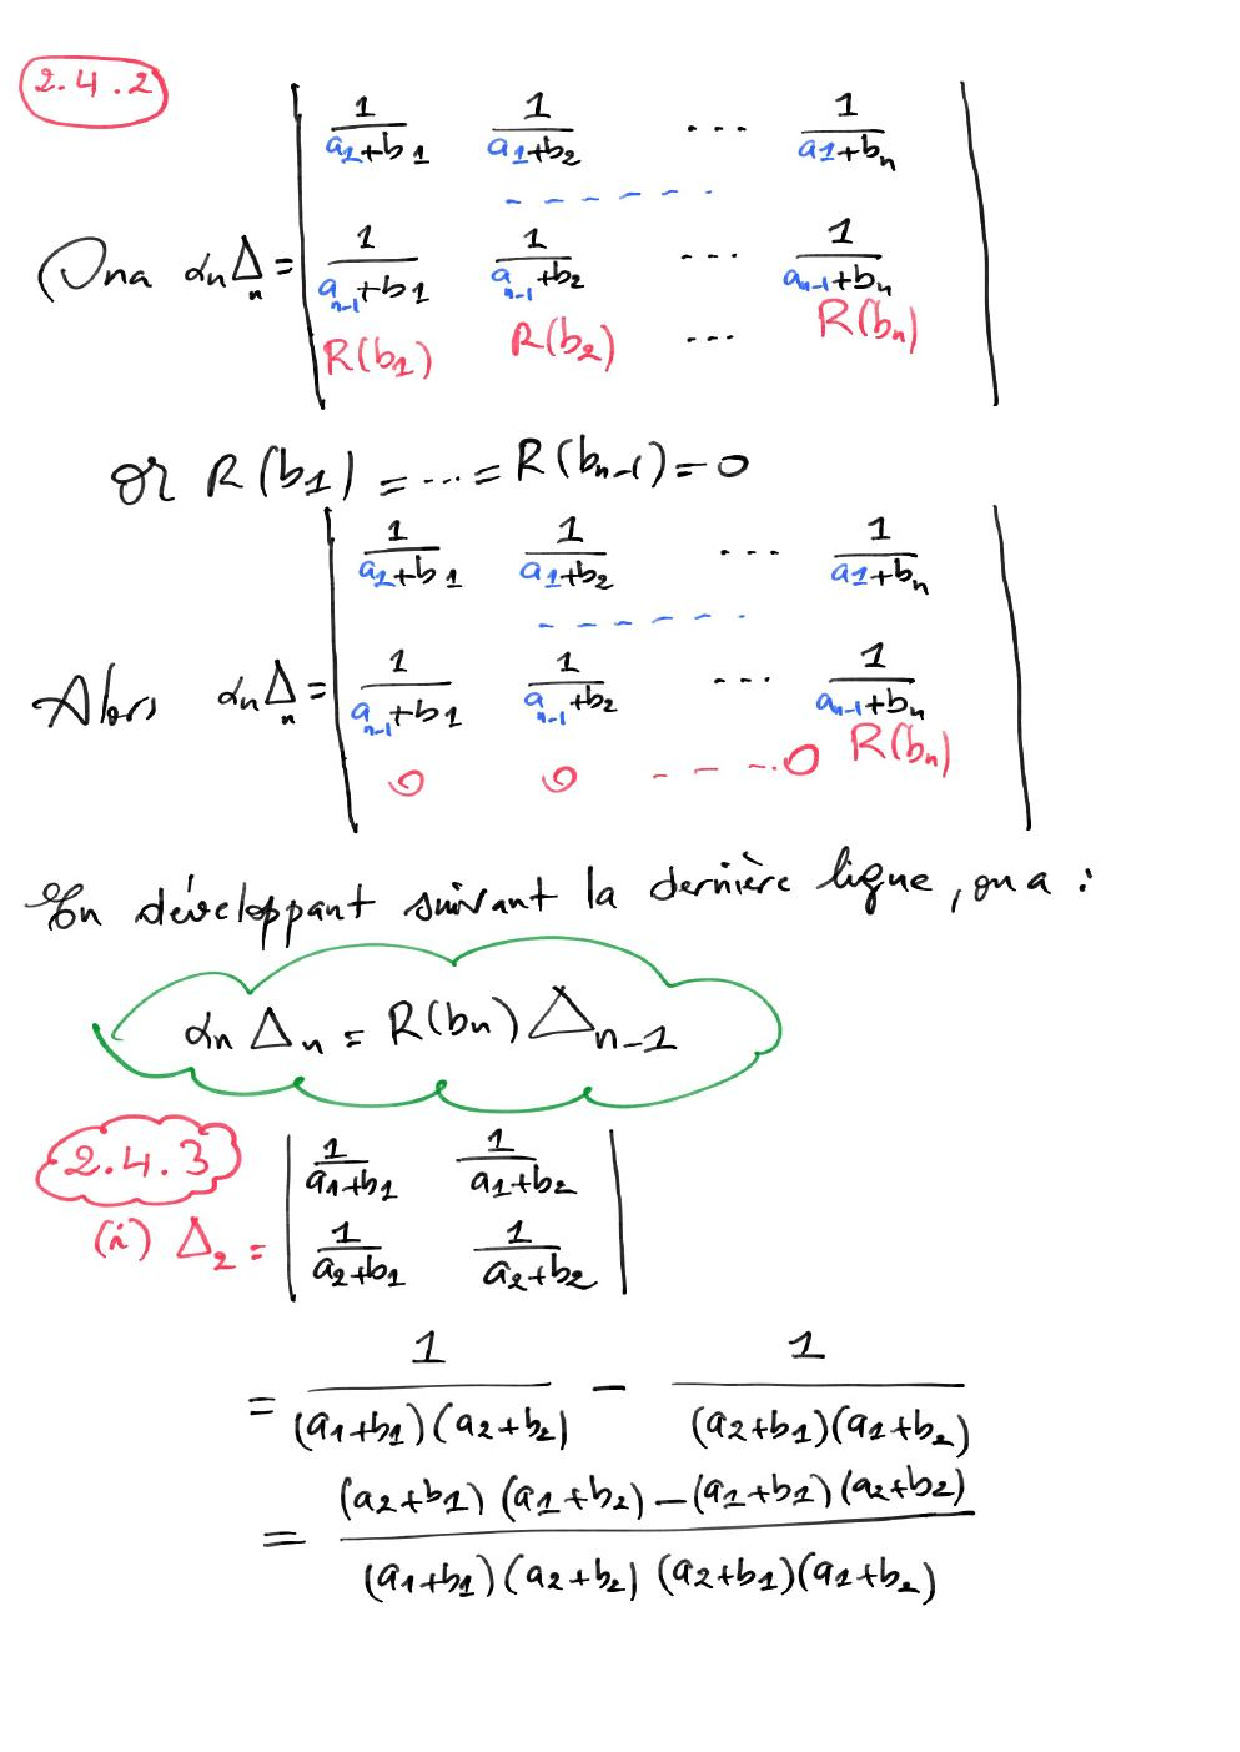 2.4.2
1/(a1+b1) 1/(a1+b2) ... 1/(a1+bn)
- - - - - -
On a αn Δn = 1/(an-1+b1) 1/(an-1+b2) ... 1/(an-1+bn)
R(b1) R(b2) ... R(bn)
or R(b1) = ... = R(bn-1) = 0
1/(a1+b1) 1/(a1+b2) ... 1/(a1+bn)
- - - - - -
Alors αn Δn = 1/(an-1+b1) 1/(an-1+b2) ... 1/(an-1+bn)
0 0 - - - . 0 R(bn)
En développant suivant la dernière ligne, on a :
αn Δn = R(bn) Δn-1
2.4.3
1/(a1+b1) 1/(a1+b2)
(i) Δ2 = 1/(a2+b1) 1/(a2+b2)
= 1/((a1+b1)(a2+b2)) − 1/((a2+b1)(a1+b2))
= ((a2+b1)(a1+b2) − (a1+b1)(a2+b2))/((a1+b1)(a2+b2)(a2+b1)(a1+b2))